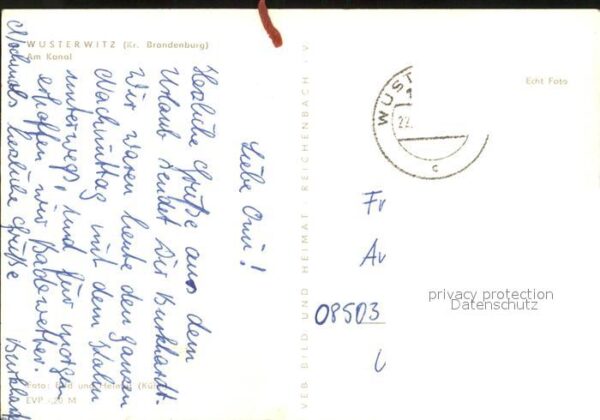 WUSTERWITZ (Kr. Brandenburg)
Am Kanal
Liebe Omi!
Herzliche Grüße aus dem
Urlaub sendet Dir Burkhardt.
Wir waren heute den ganzen
Nachmittag mit dem Kahn
unterwegs, und für morgen
erhoffen wir Badewetter.
Nochmals herzliche Grüße
Burkhardt
Foto: Bild und Heimat
EVP -,20 M
VEB BILD UND HEIMAT · REICHENBACH i. V.
Echt Foto
WUST
22.
c
Fr
Av
08503
privacy protection
Datenschutz